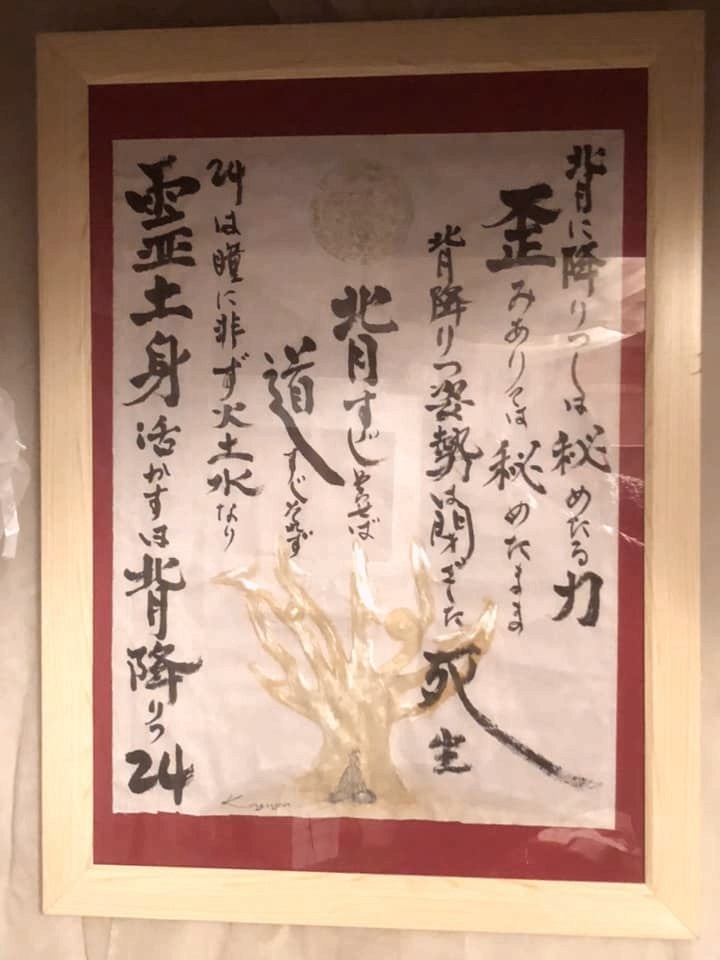 背に降りつしは秘めたる力
歪みありては秘めたまま
背降りつ姿勢は閉ざした死生
背すじ
道すじ
24は瞳に非ず火土水なり
霊土身活かすは背降りつ24